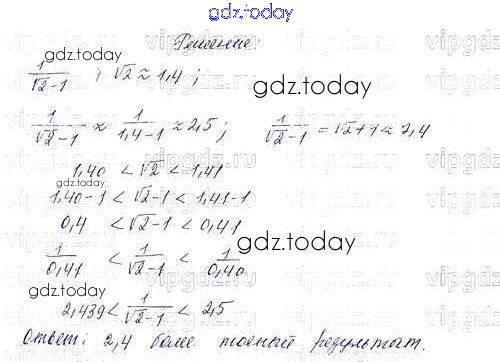 gdz.today
Решение:
gdz.today
1/(√2-1) ; √2 ≈ 1,4 ;
gdz.today
1/(√2-1) ≈ 1/(1,4-1) ≈ 2,5 ; 1/(√2-1) = √2+1 ≈ 2,4
1,40 < √2 < 1,41
gdz.today
1,40-1 < √2-1 < 1,41-1
0,4 < √2-1 < 0,41
gdz.today
1/0,41 < 1/(√2-1) < 1/0,40
gdz.today
2,439 < 1/(√2-1) < 2,5
Ответ: 2,4 более точный результат.